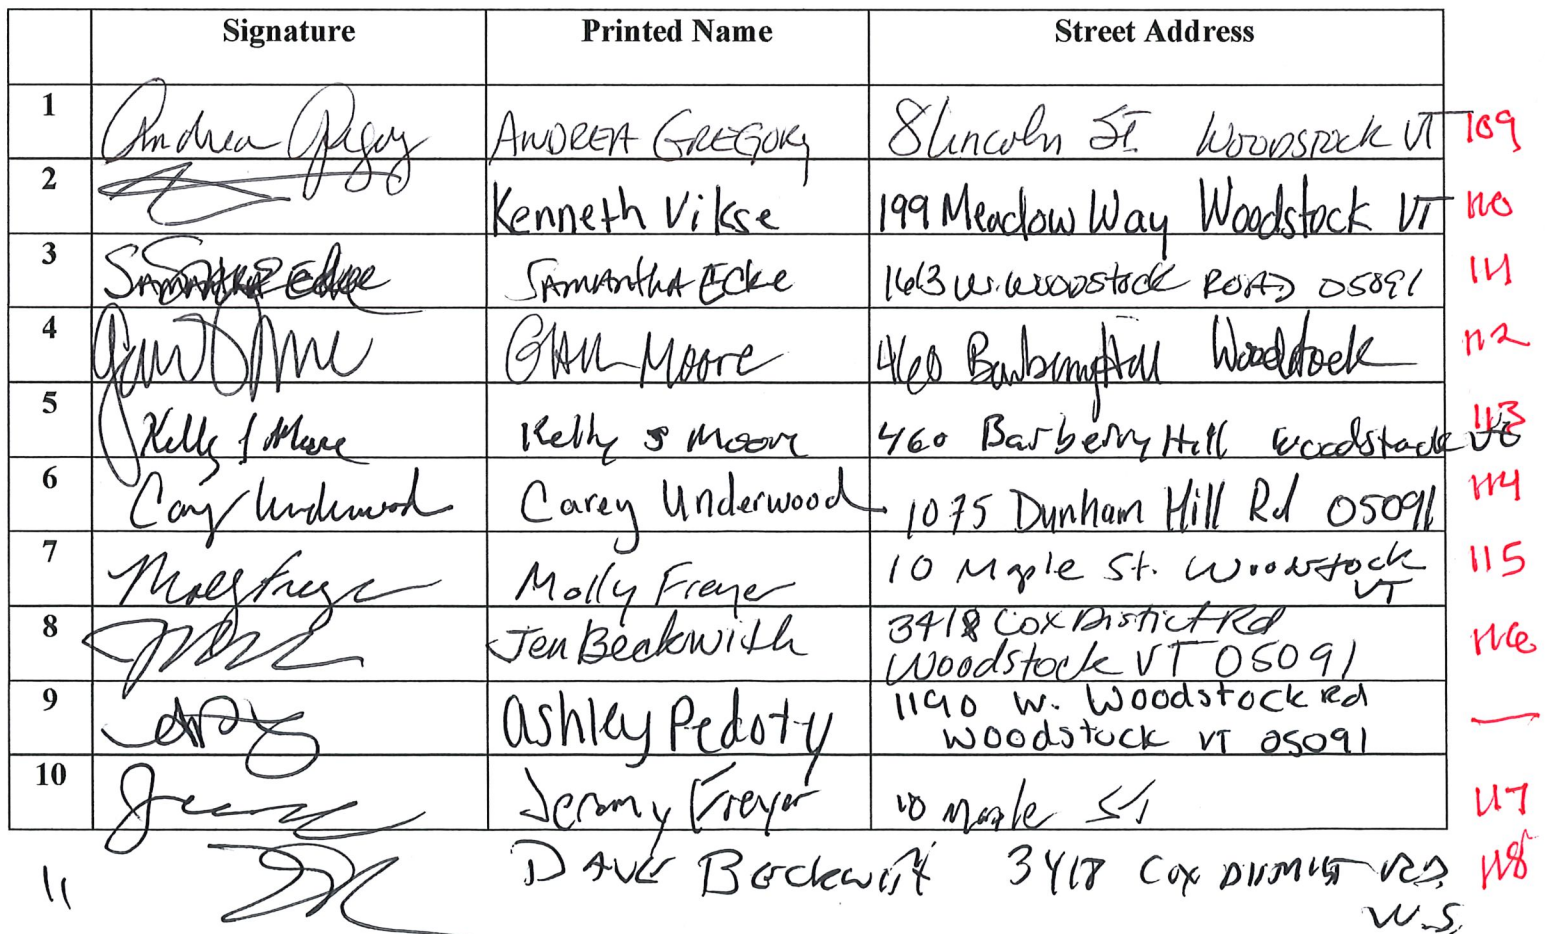 Signature Printed Name Street Address
1 Andrea Gregory ANDREA GREGORY 8 Lincoln St. Woodstock VT 109
2 Kenneth Vikse 199 Meadow Way Woodstock VT 110
3 Samantha Ecke SAMANTHA Ecke 163 W. Woodstock ROAD 05091 111
4 Moore 460 Barberry Hill Woodstock 112
5 Kelly S Moore Kelly S Moore 460 Barberry Hill Woodstock 113
6 Carey Underwood Carey Underwood 1075 Dunham Hill Rd 05091 114
7 Molly Freyer Molly Freyer 10 Maple St. Woodstock 115
VT
8 Jen Beckwith 3418 Cox District Rd 116
Woodstock VT 05091
9 Ashley Pedoty 1190 W. Woodstock Rd —
Woodstock VT 05091
10 Jeremy Freyer 10 Maple St 117
11 DAVE Beckwith 3418 Cox DISTRICT RD. 118
W.S.